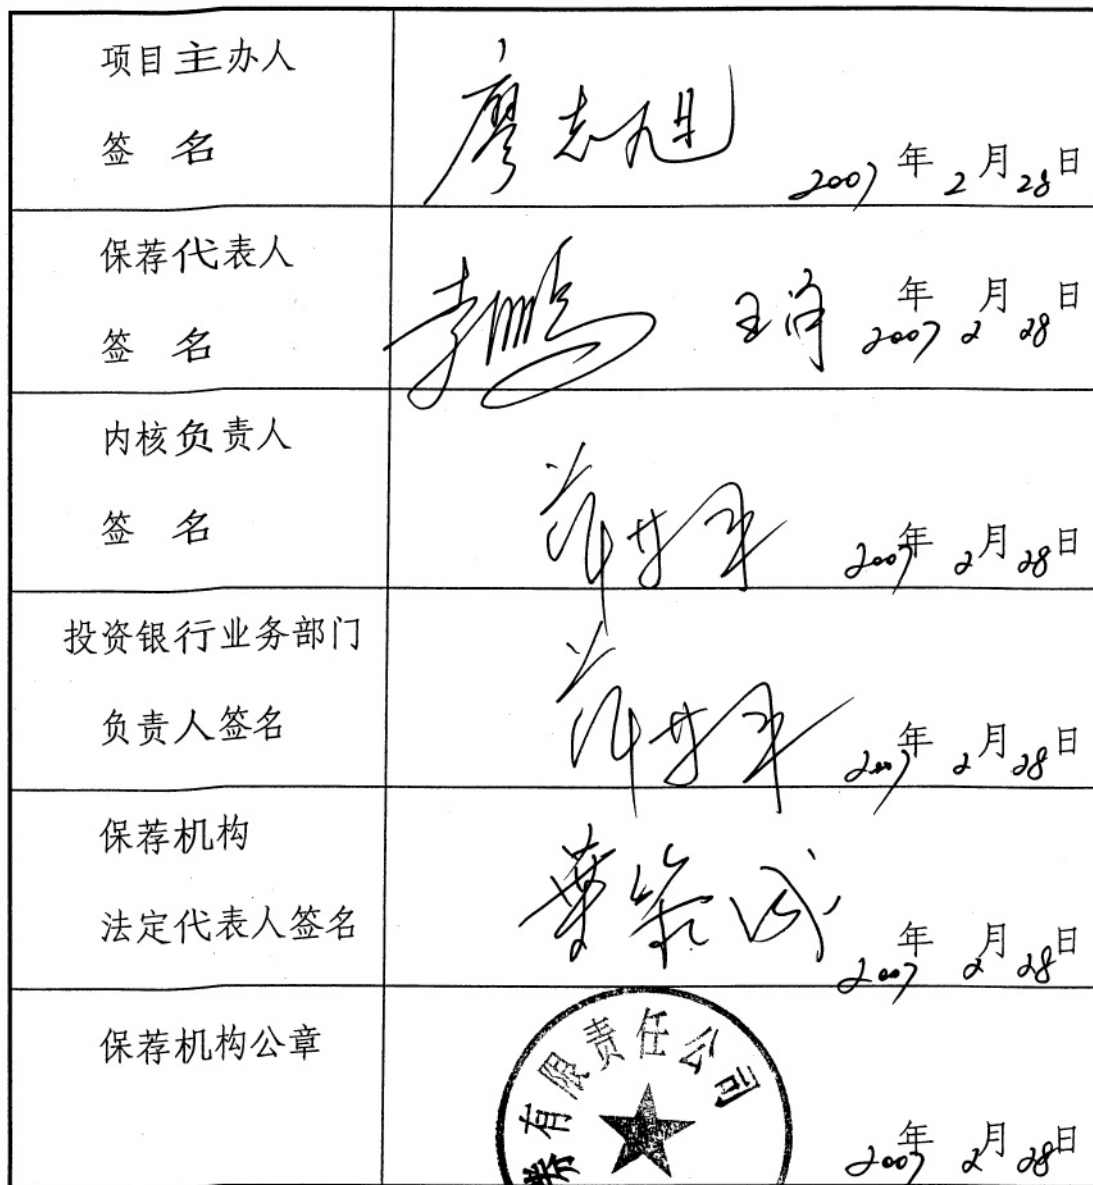 项目主办人
签 名
廖志旭
2007年2月28日
保荐代表人
签 名
李鹏
2007年2月28日
内核负责人
签 名
2007年2月28日
投资银行业务部门
负责人签名
2007年2月28日
保荐机构
法定代表人签名
2007年2月28日
保荐机构公章
券有限责任公司
2007年2月28日